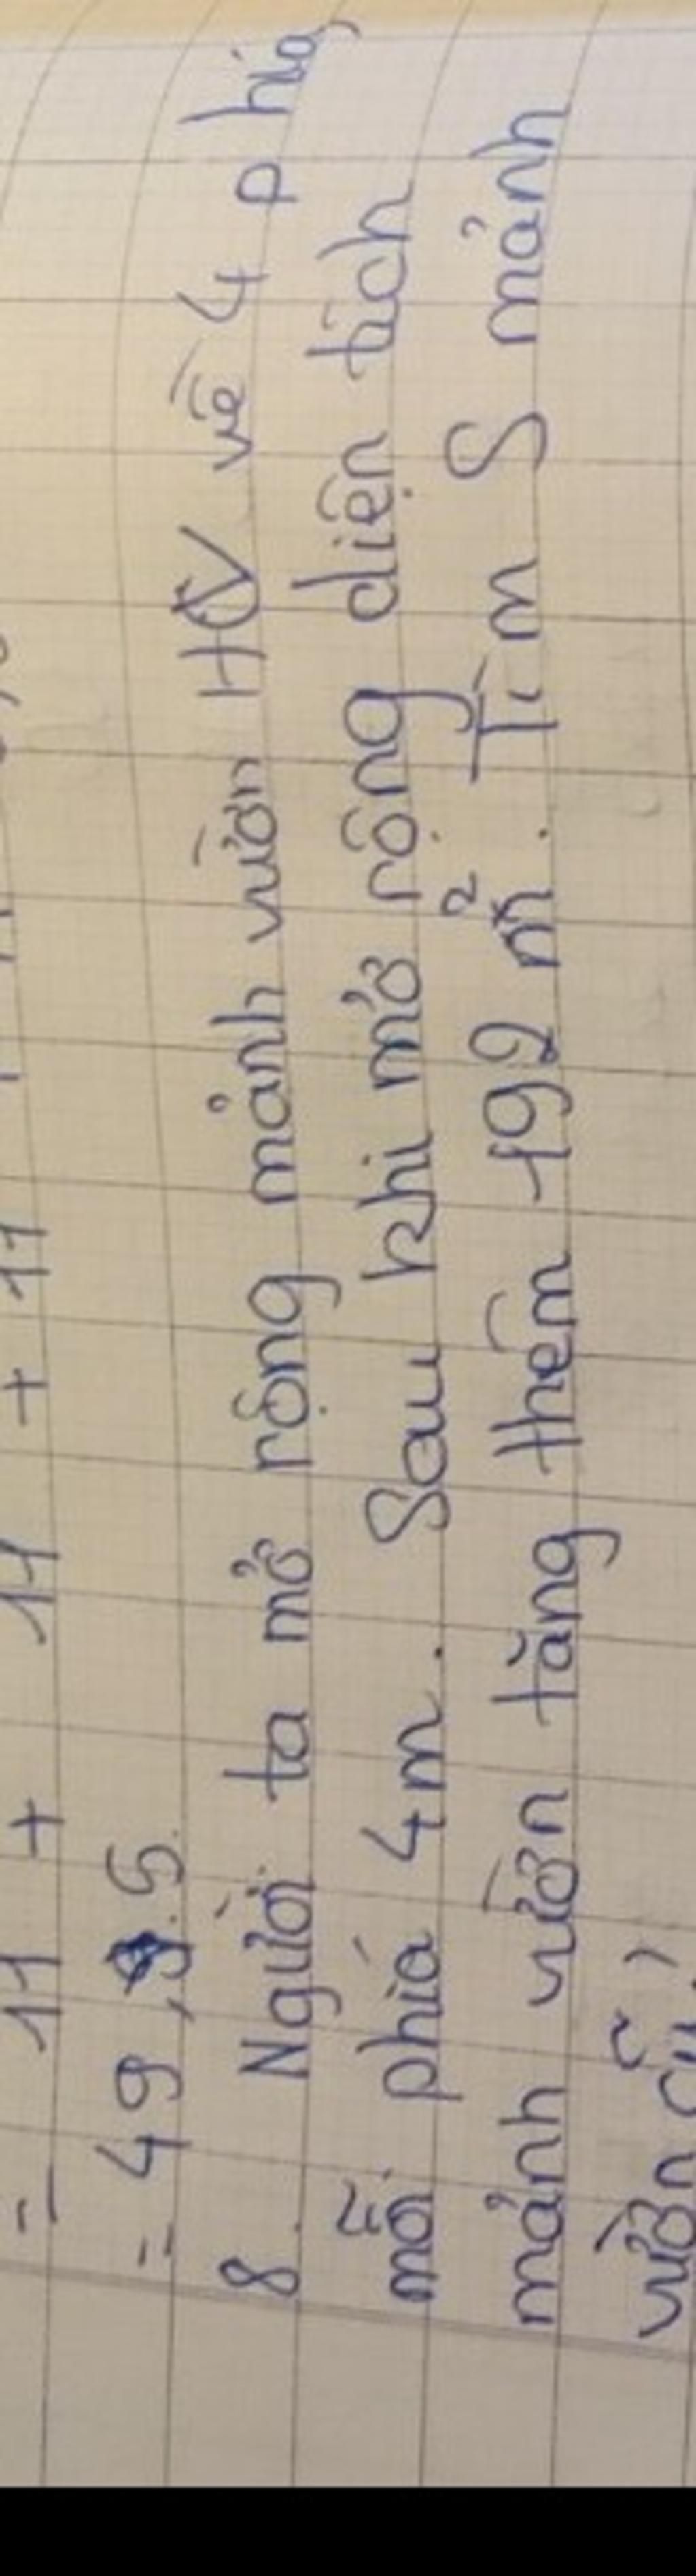 = 11 + 11 + 11
= 49,5
8. Người ta mở rộng mảnh vườn HV về 4 phía,
mỗi phía 4m. Sau khi mở rộng diện tích
mảnh vườn tăng thêm 192 m². Tìm S mảnh
vườn cũ?